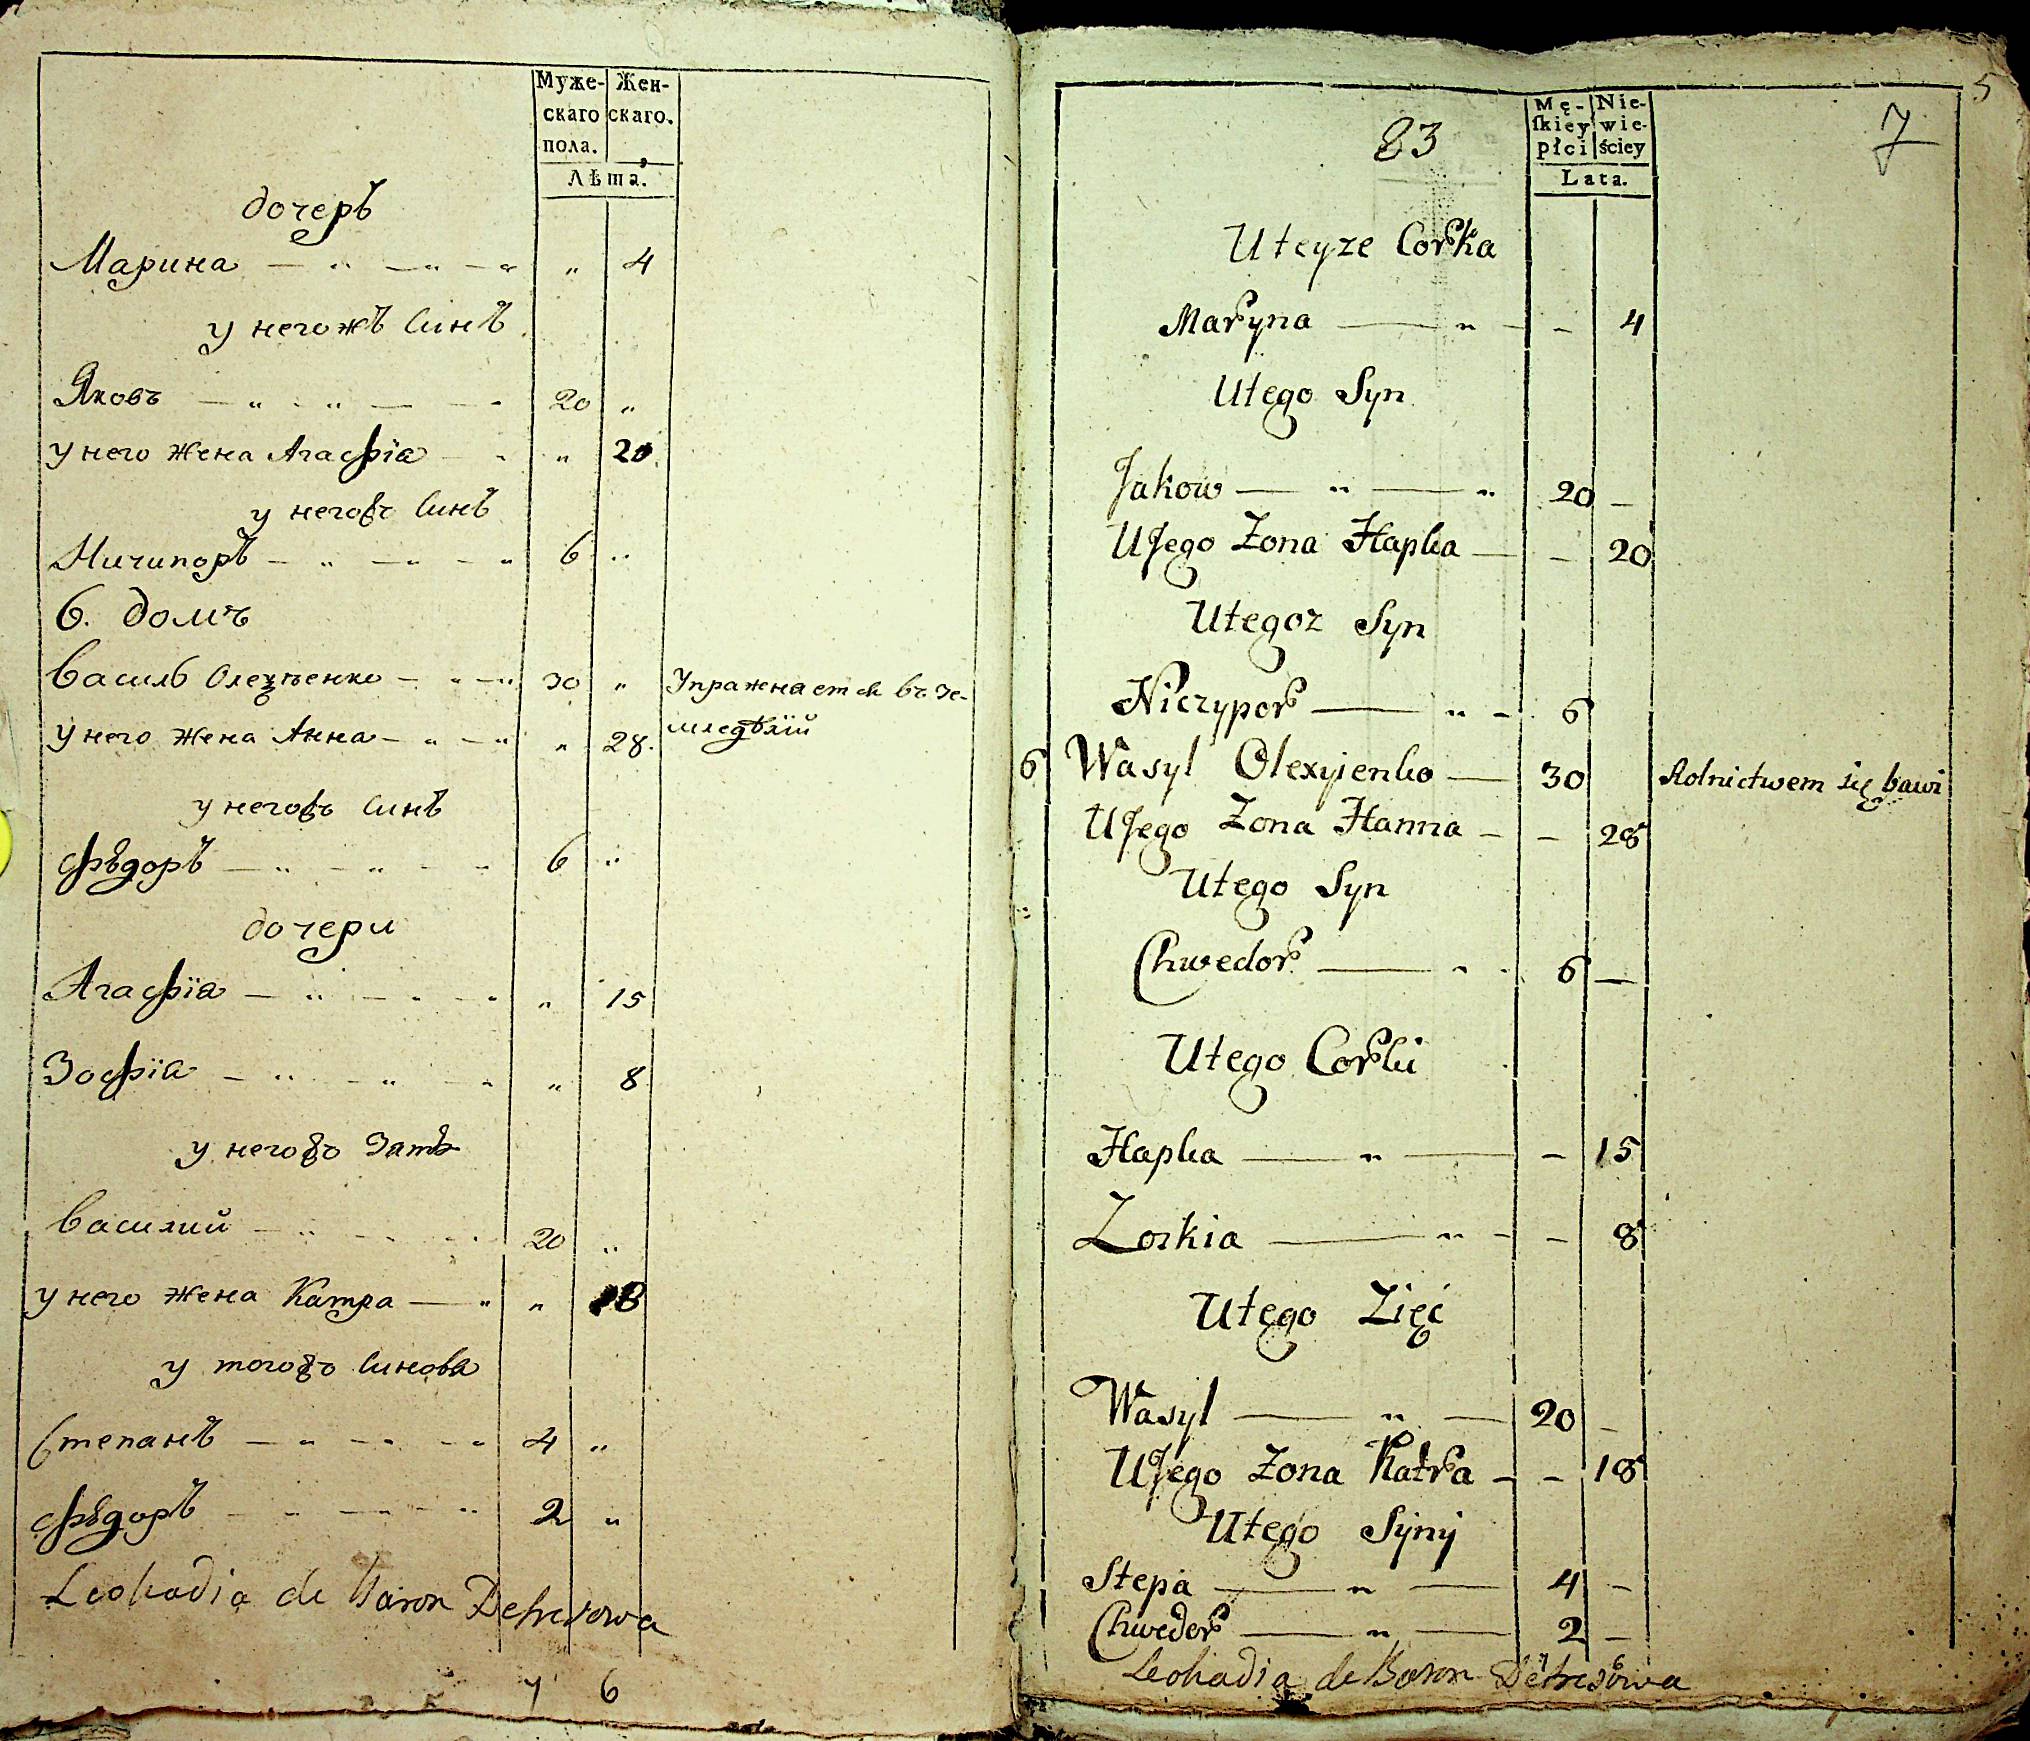 Муже- Жен-
скаго скаго.
пола.
Лѣта.
дочеръ
Марина — „ — „ — „ „ 4
у негожъ Синъ
Яковъ — „ - „ — - 20 „
у него жена Агафіа — - „ 20
у негожъ Синъ
Ничипоръ — „ — „ — „ 6 „
6. домъ
Василь — „ — „ 30 „ Упражнается въ зе-
у него жена Анна — „ — „ „ 28. мледѣлій
у негожъ Синъ
Фѣдоръ — „ — „ — - 6 „
дочери
Агафіа — „ — „ — „ „ 15
Зофіа — „ — „ — „ „ 8
у негожъ Зять
Василий — „ — - - 20 „
у него жена Катра — „ „ 18
у тогожъ Синова
Степанъ — „ — „ — „ 4 „
Фѣдоръ — - — - „ 2 „
Leokadia de Baron
7 6
5
83
7
Mę- Nie-
ſkiey wie-
płci ściey
Lata.
Uteyze Corka
Maryna — „ — – 4
Utego Syn
Jakow — „ — „ 20 –
UJego Zona Hapka — – 20
Utegoz Syn
Niczypor — „ – 6
6 Wasyl Olexyienko — 30 Rolnictwem się bawi
UJego Zona Hanna – – 28
Utego Syn
Chwedor — „ - 6 —
Utego Corki
Hapka — „ — – 15
Zoskia — „ – – 8
Utego Zięć
Wasyl — „ — 20 –
UJego Zona Katra – – 18
Utego Syny
Stepa — „ — 4 –
Chwedor — „ — 2 –
Leokadia de Baron